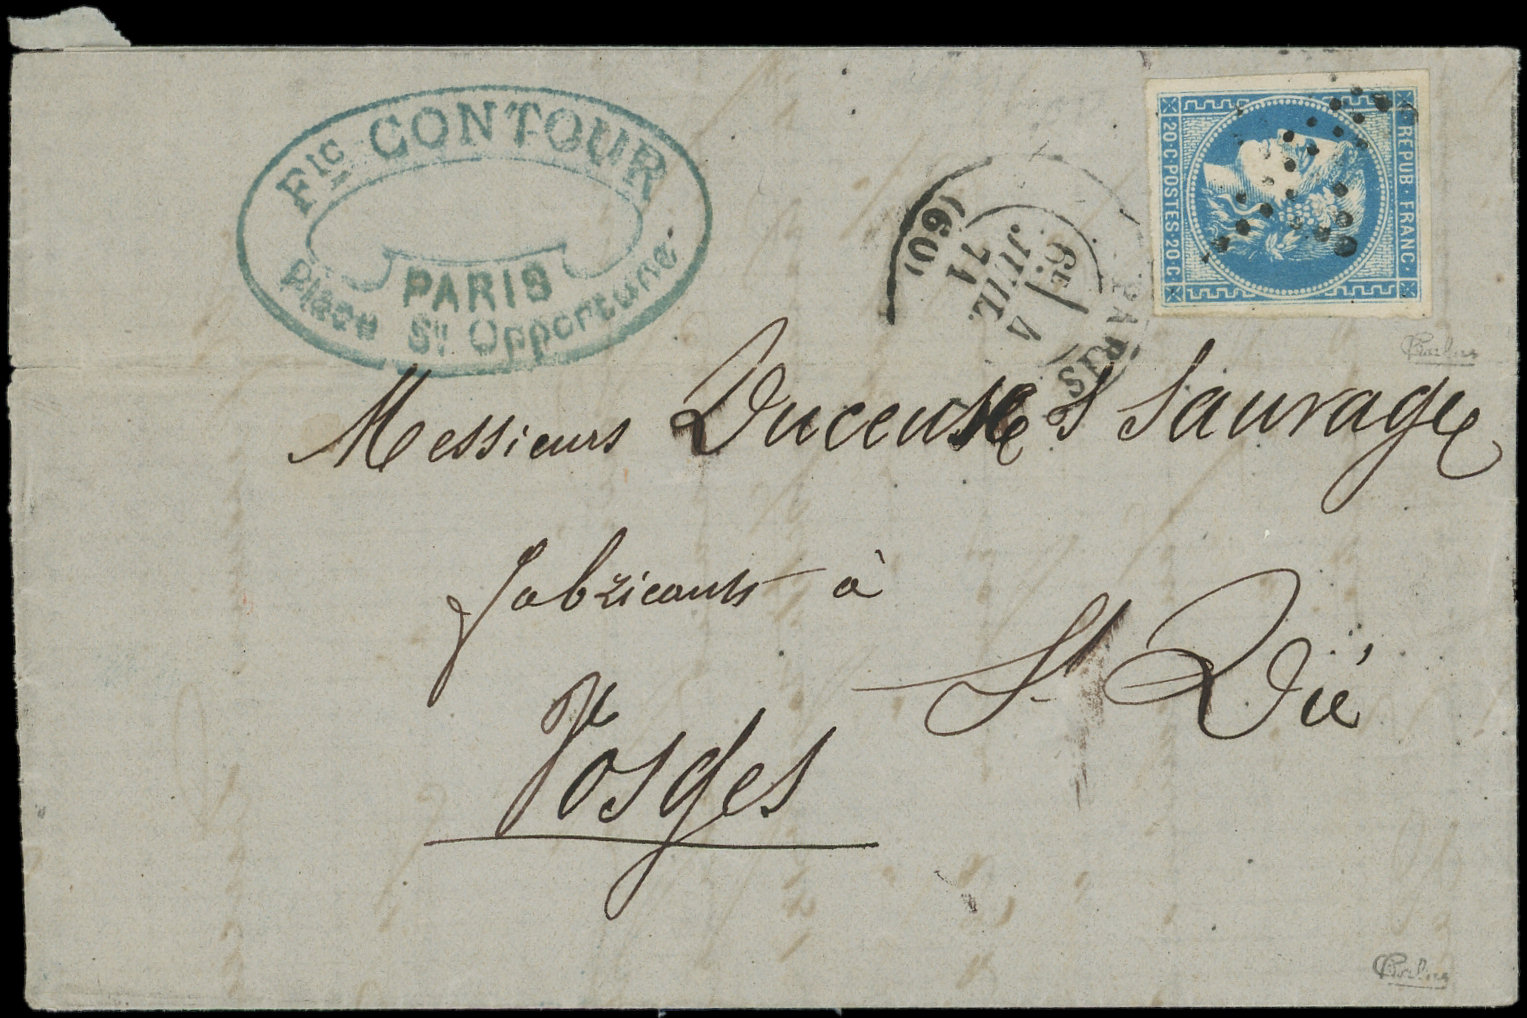 Fic CONTOUR
PARIS
Place Ste Opportune.
REPUB. FRANC.
20·C·POSTES·20·C
PARIS
6E
4
JUIL
71
(60)
Messieurs Duceux & Sauvage
fabricants à
St Dié
Vosges